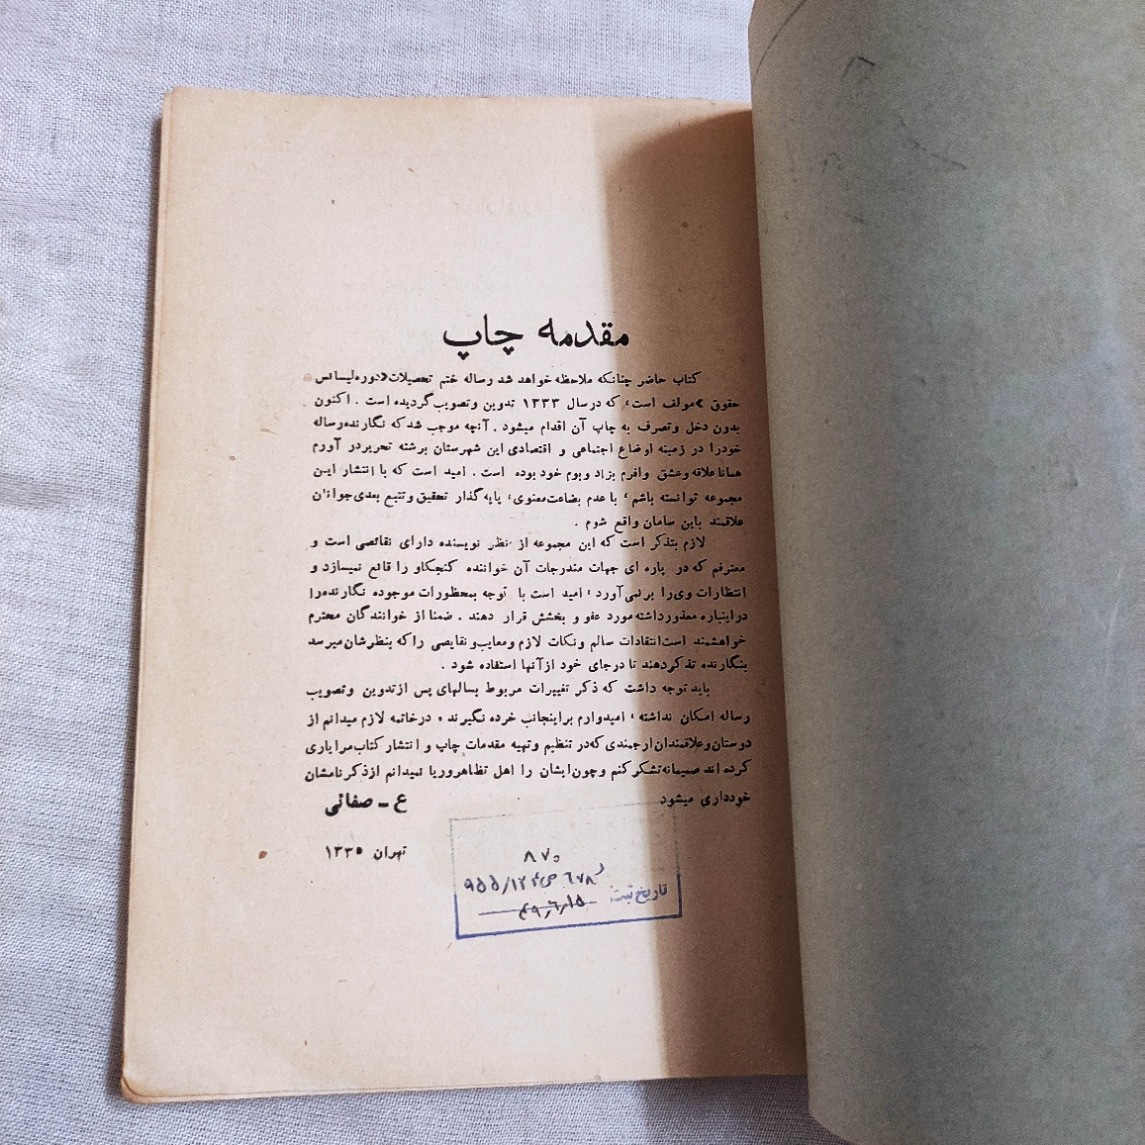 مقدمه چاپ
کتاب حاضر چنانکه ملاحظه خواهد شد رساله ختم تحصیلات «دوره لیسانس
حقوق » مولف است، که در سال ۱۳۳۳ تدوین و تصویب گردیده است . اکنون
بدون دخل و تصرف به چاپ آن اقدام میشود . آنچه موجب شد که نگارنده رساله
خود را در زمینه اوضاع اجتماعی و اقتصادی این شهرستان برشته تحریر در آورم
همانا علاقه و عشق وافرم بزاد و بوم خود بوده است . امید است که با انتشار این
مجموعه توانسته باشم، با عدم بضاعت معنوی، پایه گذار تحقیق و تتبع بعدی جوانان
علاقمند باین سامان واقع شوم .
لازم بتذکر است که این مجموعه از نظر نویسنده دارای نقائصی است و
معترفم که در پاره ای جهات مندرجات آن خواننده کنجکاو را قانع نمیسازد و
انتظارات وی را بر نمی آورد ، امید است با توجه بمحظورات موجوده نگارنده را
در اینباره معذور داشته مورد عفو و بخشش قرار دهند . ضمنا از خوانندگان محترم
خواهشمند است انتقادات سالم و نکات لازم و معایب و نقایصی را که بنظرشان میرسد
بنگارنده تذکر دهند تا در جای خود از آنها استفاده شود .
باید توجه داشت که ذکر تغییرات مربوط بسالهای پس از تدوین و تصویب
رساله امکان نداشته ، امیدوارم بر اینجانب خرده نگیرند ، در خاتمه لازم میدانم از
دوستان و علاقمندان ارجمندی که در تنظیم و تهیه مقدمات چاپ و انتشار کتاب مرا یاری
کرده اند صمیمانه تشکر کنم و چون ایشان را اهل تظاهر و ریا نمیدانم از ذکر نامشان
خودداری میشود
ع - صفائی
تهران ۱۳۳۵
۸۷۰
۹۵۵/۱۲۴
تاریخ ثبت: ۴۹/۶/۱۵